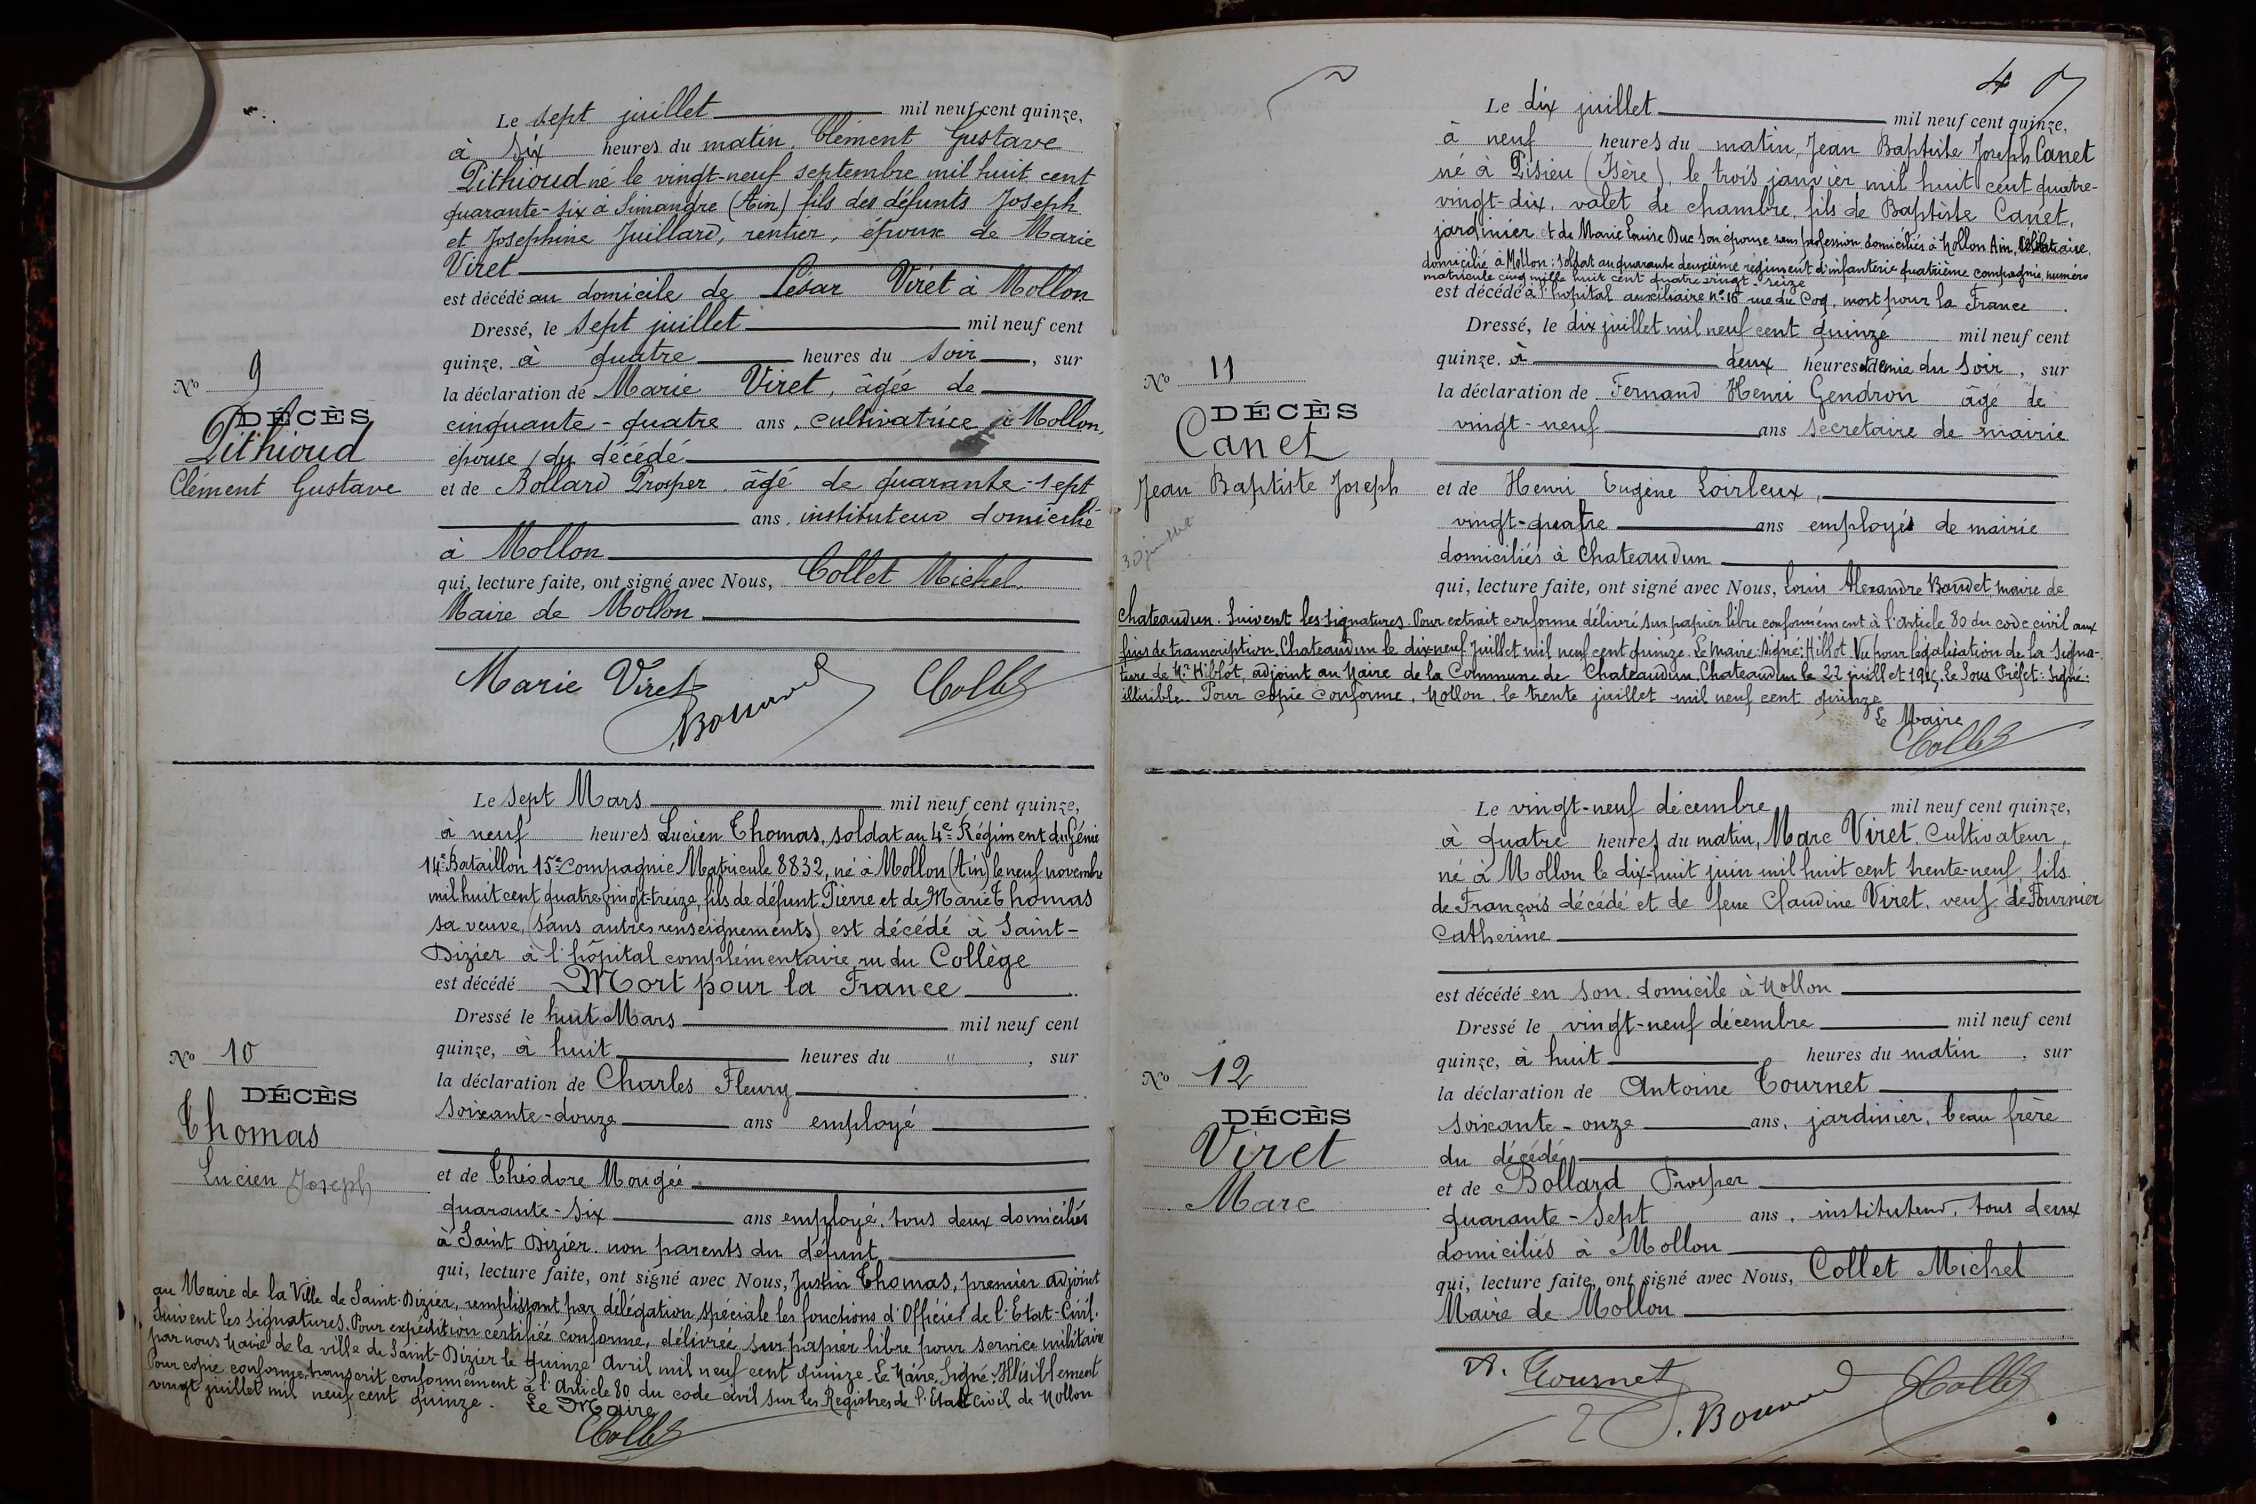 Le sept juillet mil neuf cent quinze,
à six heures du matin, Clément Gustave
Pithioud né le vingt-neuf septembre mil huit cent
quarante-six à Simandre (Ain) fils des défunts Joseph
et Joséphine Juillard, rentier, époux de Marie
Viret
est décédé au domicile de César Viret à Mollon
Dressé, le sept juillet mil neuf cent
quinze, à quatre heures du soir, sur
la déclaration de Marie Viret, âgée de
cinquante-quatre ans, cultivatrice à Mollon,
épouse du décédé
et de Bollard Prosper âgé de quarante-sept
ans, instituteur domicilié
à Mollon
qui, lecture faite, ont signé avec Nous, Collet Michel,
Maire de Mollon
Marie Viret
Collet
No 9
DÉCÈS
Pithioud
Clément Gustave
Le sept Mars mil neuf cent quinze,
à neuf heures Lucien Thomas, soldat au 4e Régiment du Génie
14e Bataillon 15e Compagnie Matricule 8832, né à Mollon (Ain) le neuf novembre
mil huit cent quatre vingt-treize, fils de défunt Pierre et de Marie Thomas
sa veuve, (sans autres renseignements) est décédé à Saint-
Dizier à l'hôpital complémentaire ru du Collège
est décédé Mort pour la France
Dressé le huit Mars mil neuf cent
quinze, à huit heures du " , sur
la déclaration de Charles Fleury
soixante-douze ans employé
et de Théodore Mougée
quarante-six ans employé, tous deux domiciliés
à Saint Dizier. non parents du défunt
qui, lecture faite, ont signé avec Nous, Justin Thomas, premier adjoint
au Maire de la Ville de Saint-Dizier, remplissant par délégation spéciale les fonctions d'Officier de l'Etat-Civil.
Suivent les signatures. Pour expédition certifiée conforme, délivrée sur papier libre pour service militaire
par nous Maire de la ville de Saint-Dizier le quinze Avril mil neuf cent quinze. Le Maire, Signé: Illisiblement
Pour copie conforme, transcrit conformément à l'Article 80 du code civil sur les Registres de l'Etat Civil de Mollon
vingt juillet mil neuf cent quinze. Le Maire
Collet
No 10
DÉCÈS
Thomas
Lucien Joseph
4
Le dix juillet mil neuf cent quinze,
à neuf heures du matin, Jean Baptiste Joseph Canet
né à Pisieu (Isère), le trois janvier mil huit cent quatre-
vingt-dix, valet de chambre, fils de Baptiste Canet,
jardinier et de Marie Louise Duc son épouse sans profession domiciliés à Mollon Ain, célibataire,
domicilié à Mollon: soldat au quarante deuxième régiment d'infanterie quatrième compagnie, numéro
matricule cinq mille huit cent quatre vingt-seize
est décédé à l'hôpital auxiliaire n° 16 rue du Coq, mort pour la France
Dressé, le dix juillet mil neuf cent quinze mil neuf cent
quinze, à deux heures et demie du soir, sur
la déclaration de Fernand Henri Gendron âgé de
vingt-neuf ans secrétaire de mairie
et de Henri Eugène Loirleux,
vingt-quatre ans employés de mairie
domiciliés à Chateaudun
qui, lecture faite, ont signé avec Nous, Louis Alexandre Baudet maire de
Chateaudun. Suivent les signatures. Pour extrait conforme délivré sur papier libre conformément à l'Article 80 du code civil aux
fins de transcription. Chateaudun le dix-neuf Juillet mil neuf cent quinze. Le Maire: Signé: Hillot. Vu pour légalisation de la signa-
ture de Mr Hiblot, adjoint au Maire de la Commune de Chateaudun. Chateaudun le 22 juillet 1915. Le Sous Préfet: Signé:
illisible. Pour copie conforme, Mollon, le trente juillet mil neuf cent quinze
Le Maire
Collet
No 11
DÉCÈS
Canet
Jean Baptiste Joseph
30 juillet
Le vingt-neuf décembre mil neuf cent quinze,
à quatre heures du matin, Marc Viret, cultivateur,
né à Mollon le dix-huit juin mil huit cent trente-neuf, fils
de François décédé et de feue Claudine Viret, veuf de Fournier
Catherine
est décédé en son domicile à Mollon
Dressé le vingt-neuf décembre mil neuf cent
quinze, à huit heures du matin, sur
la déclaration de Antoine Tournet
soixante-onze ans, jardinier, beau frère
du décédé
et de Bollard Prosper
quarante-sept ans, instituteur, tous deux
domiciliés à Mollon
qui, lecture faite, ont signé avec Nous, Collet Michel
Maire de Mollon
A. Tournet
Collet
No 12
DÉCÈS
Viret
Marc